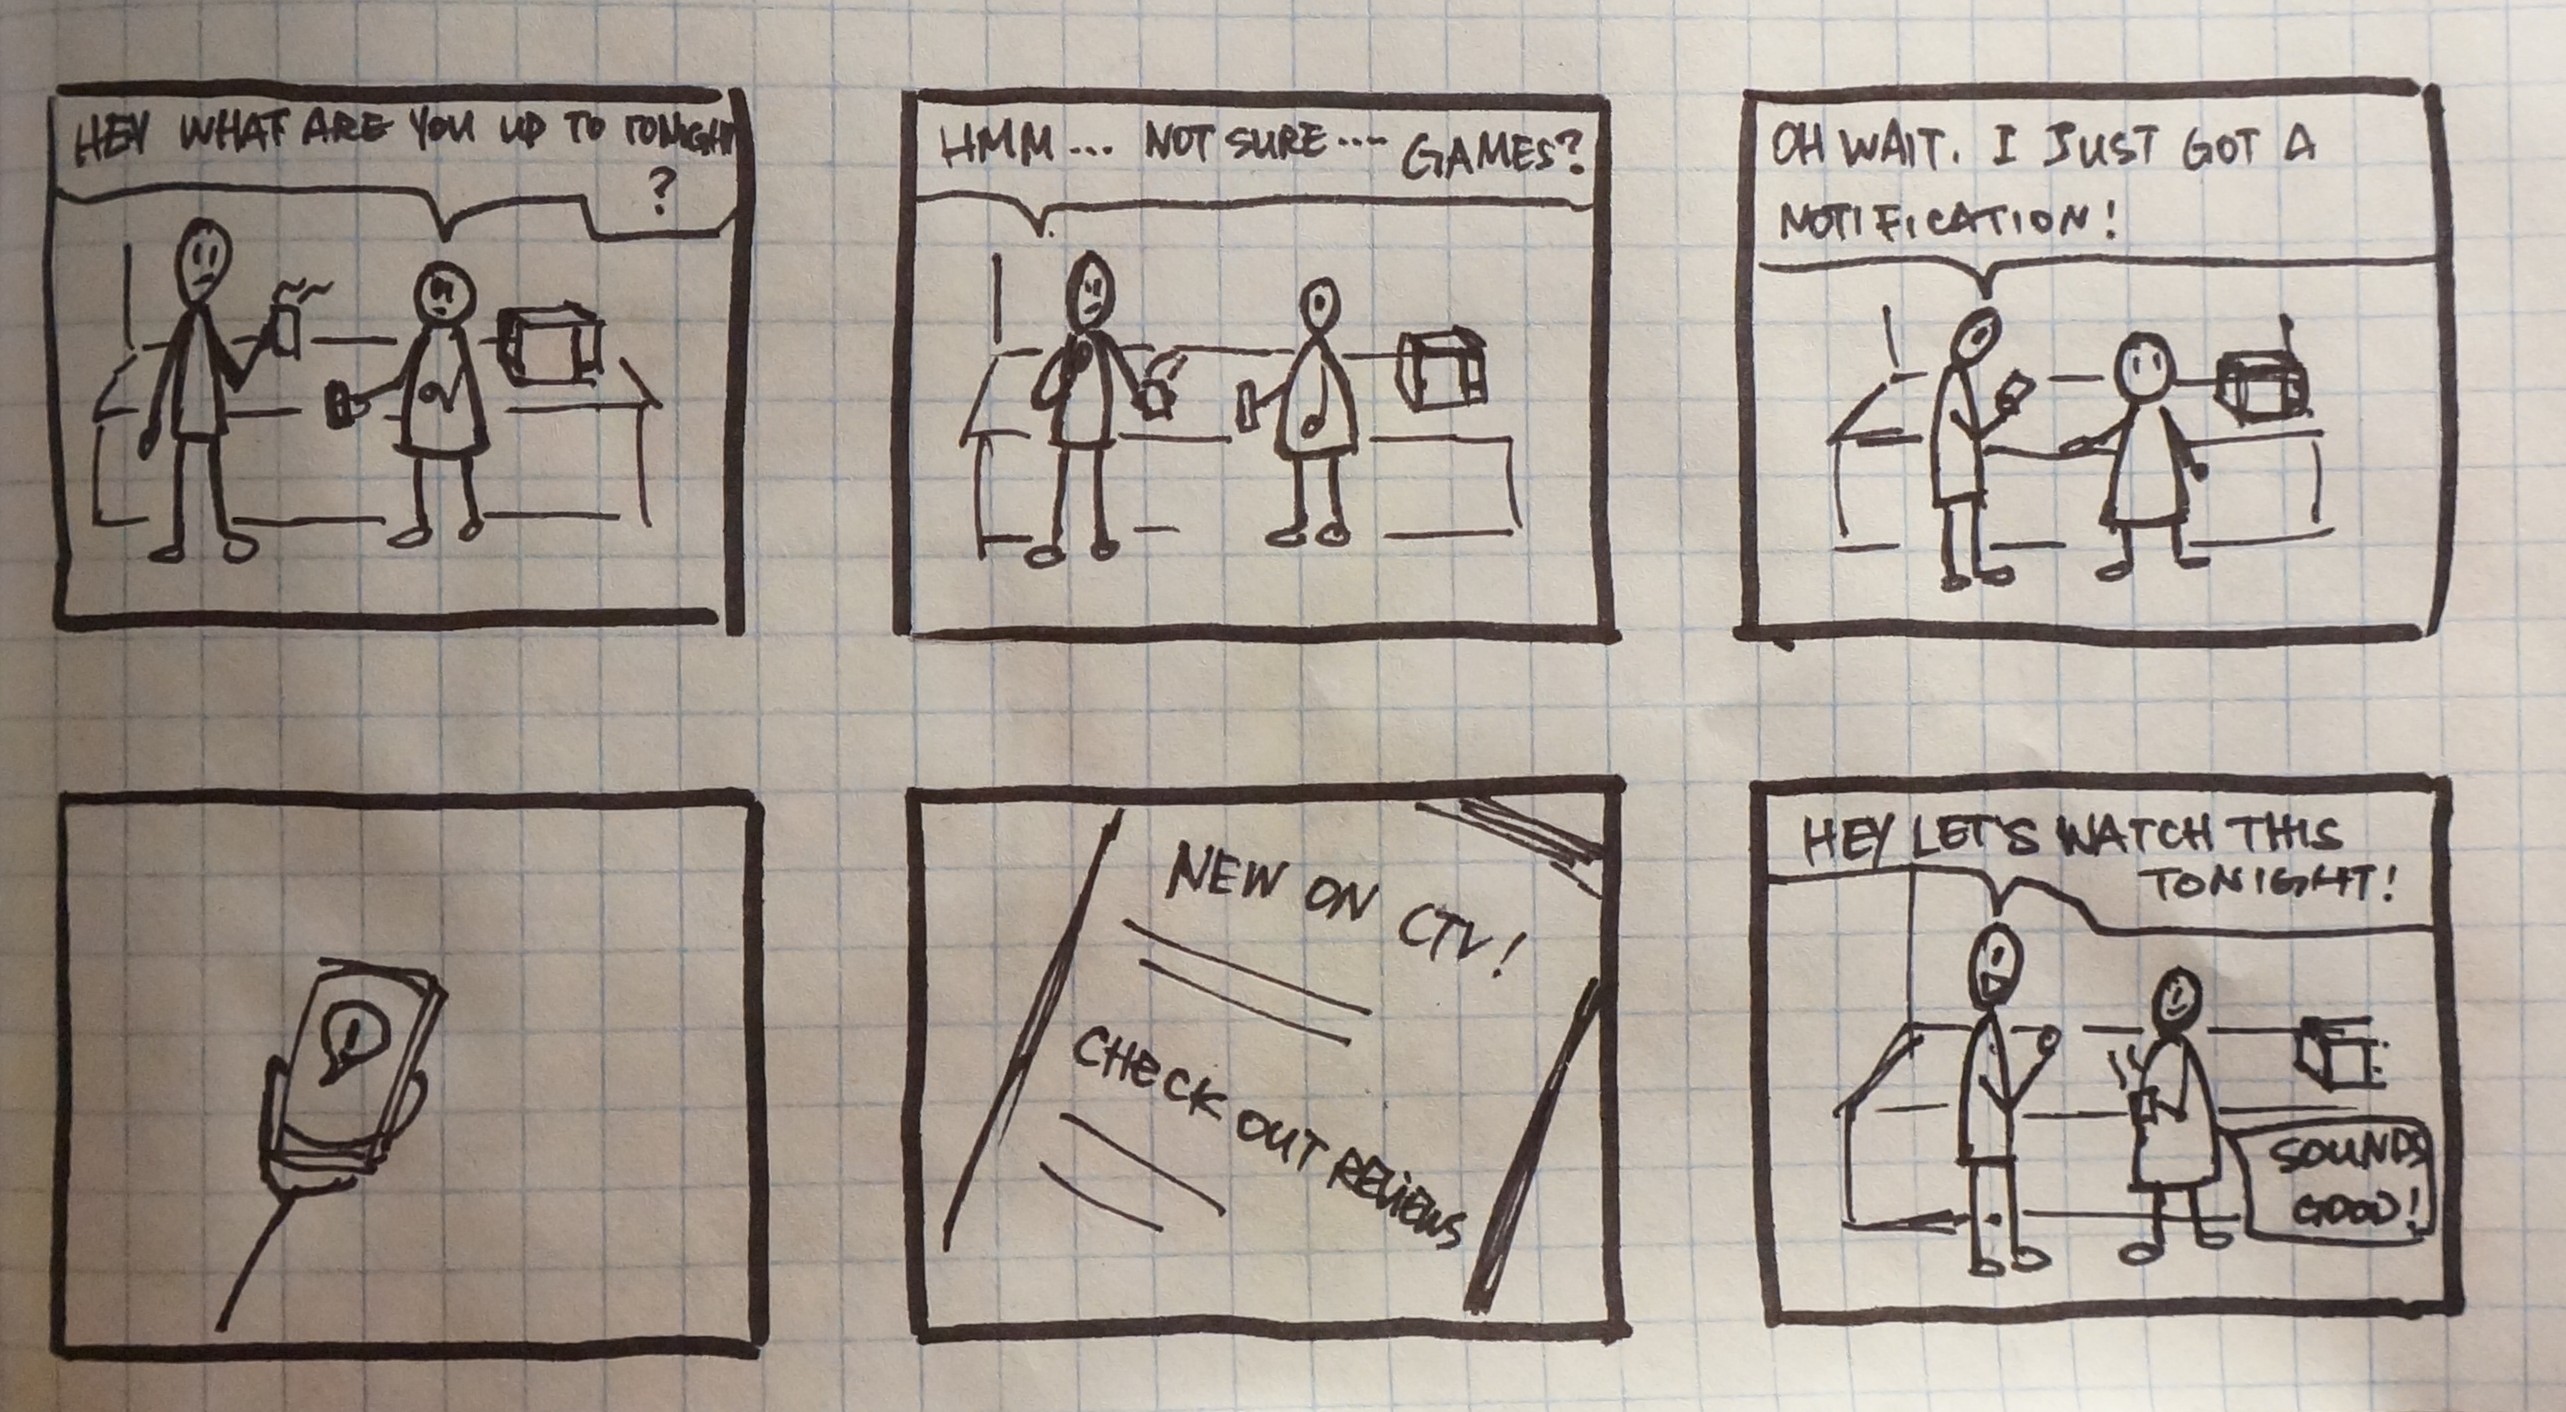 HEY WHAT ARE YOU UP TO TONIGHT
?
HMM... NOT SURE.... GAMES?
OH WAIT. I JUST GOT A
NOTIFICATION!
!
NEW ON CTV!
CHECK OUT REVIEWS
HEY LET'S WATCH THIS
TONIGHT!
SOUNDS
GOOD!